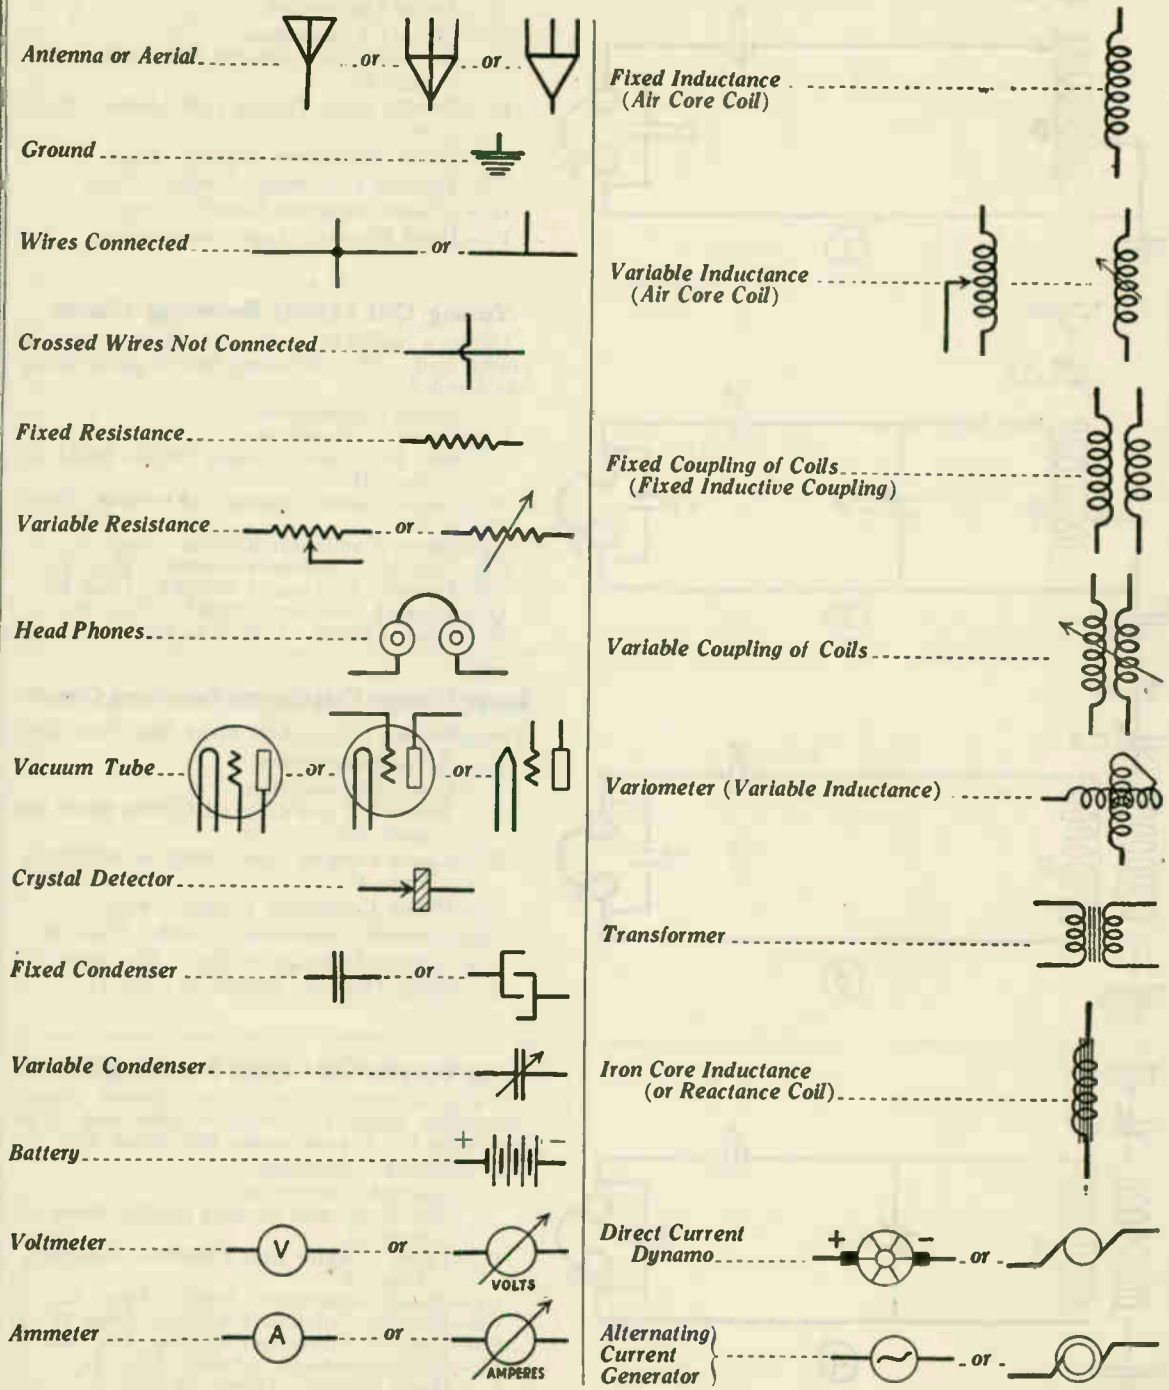 Antenna or Aerial or or
Ground
Wires Connected or
Crossed Wires Not Connected
Fixed Resistance
Variable Resistance or
Head Phones
Vacuum Tube or or
Crystal Detector
Fixed Condenser or
Variable Condenser
Battery + −
Voltmeter V or
VOLTS
Ammeter A or
AMPERES
Fixed Inductance
(Air Core Coil)
Variable Inductance
(Air Core Coil)
Fixed Coupling of Coils
(Fixed Inductive Coupling)
Variable Coupling of Coils
Variometer (Variable Inductance)
Transformer
Iron Core Inductance
(or Reactance Coil)
Direct Current + −
Dynamo or
Alternating
Current or
Generator